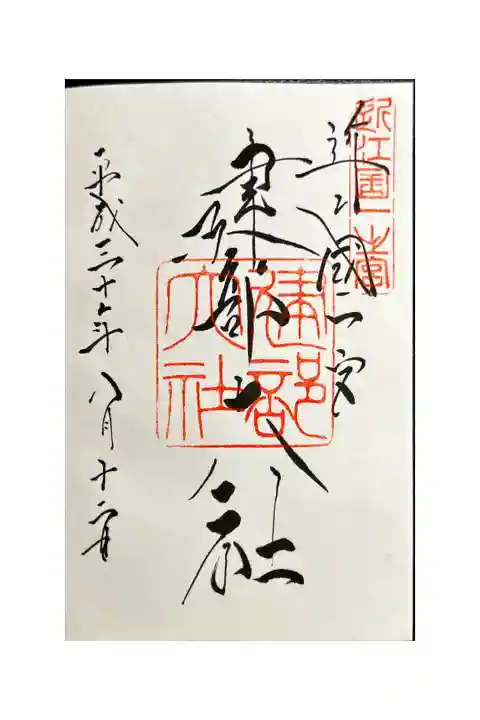 近江國一之宮
近江國一宮
建部大社
建部大社
平成三十年八月十二日